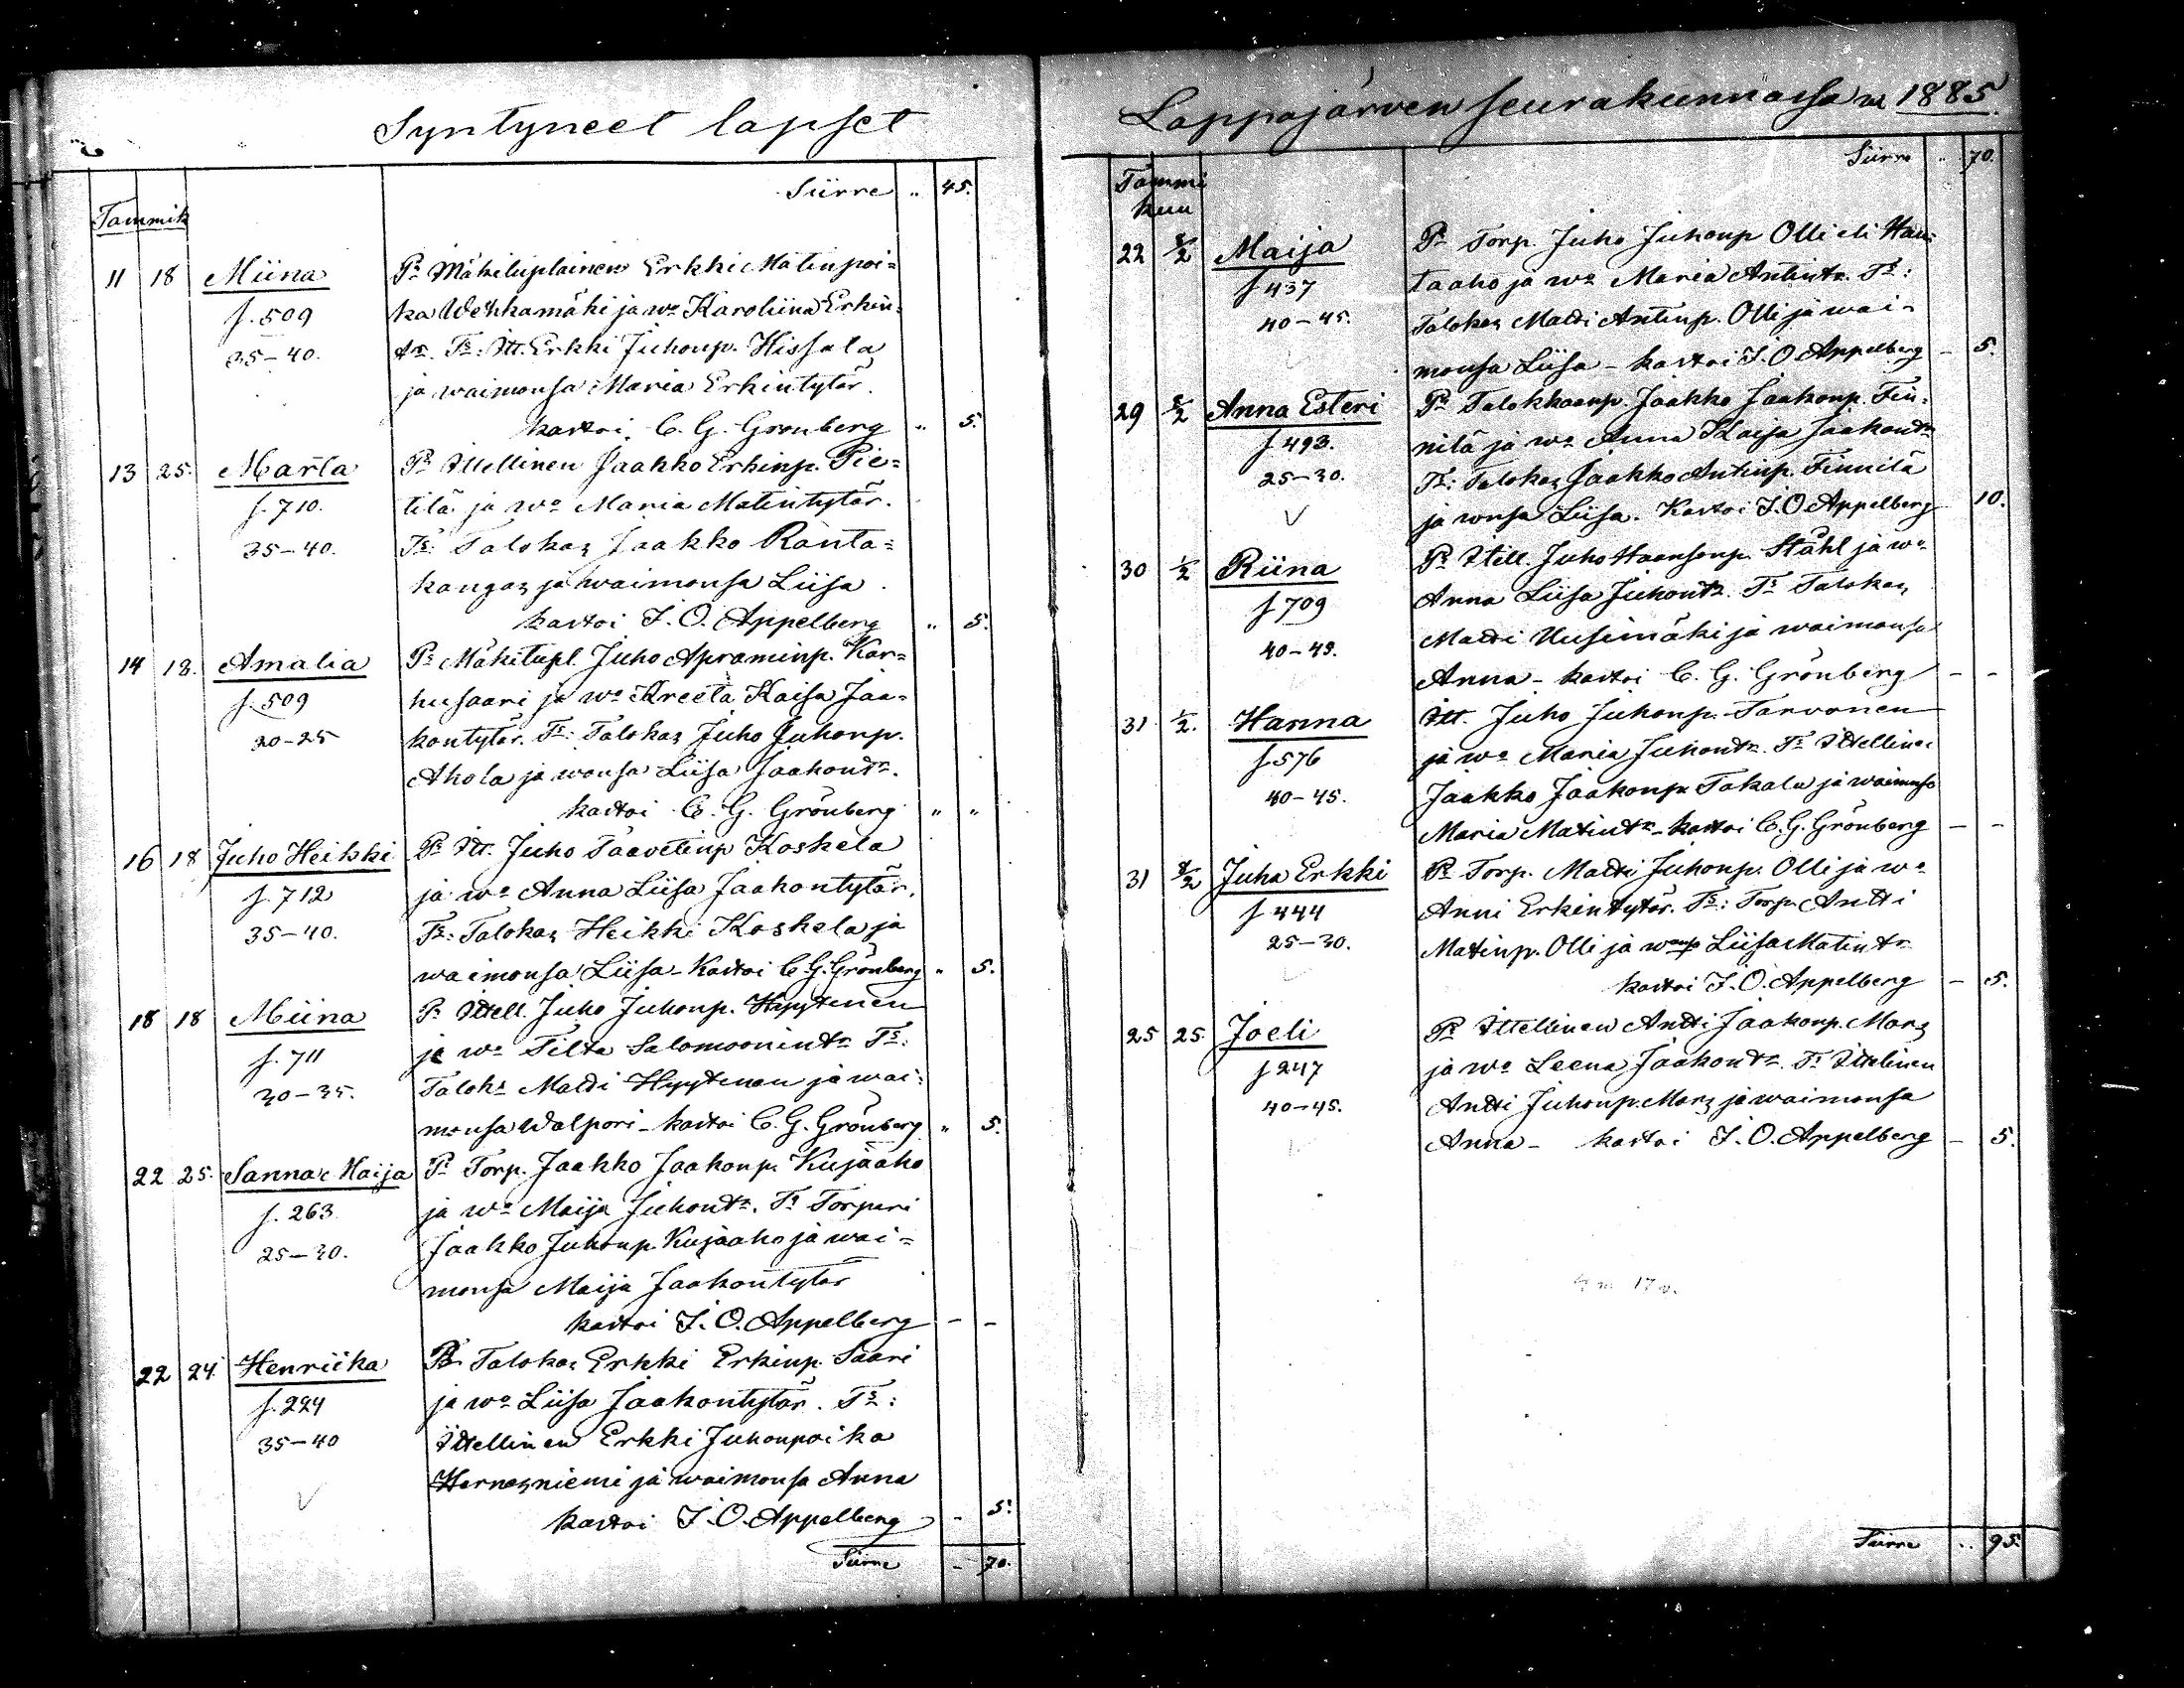 Syntyneet lapset
Siirre „ 45.
Tammik
11 18 Miina P:r Mäkituplainen Erkki Matinpoi=
f. 509 ka Wehkamäki ja w:o Karoliina Erkin=
35–40. t:r. T:t: Itt. Erkki Juhonp. Hissala
ja waimonsa Maria Erkintytär.
kastoi C. G. Grönberg „ 5.
13 25. Marta P:r Itellinen Jaakko Erkinp. Pie=
f. 710. tilä ja w:o Maria Matintytär.
35–40. T:t: Talokas Jaakko Ranta=
kangas ja waimonsa Liisa.
kastoi J. O. Appelberg „ 5.
14 18. Amalia P:r Mäkitupl. Juho Apraminp. Kar=
f. 509 husaari ja w:o Kreeta Kaisa Jaa=
20–25 kontytär. T:t: Talokas Juho Juhonp.
Ahola ja wonsa Liisa Jaakont:r.
kastoi C. G. Grönberg „ „
16 18 Juho Heikki P:r Itt. Juho Taavetinp Koskela
f. 712 ja w:o Anna Liisa Jaakontytär.
35–40. T:t: Talokas Heikki Koskela ja
waimonsa Liisa – Kastoi C. G. Grönberg „ 5.
18 18 Miina P:r Ittell. Juho Juhonp. Hyytinen
f. 711 ja w:o Tilta Salomonint:r T:t:
30–35. Talok:s Matti Hyytinen ja wai=
monsa Walpori – kastoi C. G. Grönberg „ 5.
22 25. Sanna Maija P:r Torp. Jaakko Jaakonp. Kujaaho
f. 263 ja w:o Maija Juhont:r. T:t Torpari
25–30. Jaakko Juhonp. Kujaaho ja wai=
monsa Maija Jaakontytär
kastoi J. O. Appelberg – –
22 24. Henriika P:r Talokas Erkki Erkinp. Saari
f. 224 ja w:o Liisa Jaakontytär. T:t:
35–40 Ittellinen Erkki Juhonpoika
Hernesniemi ja waimonsa Anna
kastoi J. O. Appelberg – 5.
Siirre – 70.
Lappajärven seurakunnassa w. 1885.
Siirre „ 70.
Tammi
kuu
22 8/2 Maija P:r Torp. Juho Juhonp Olli eli Hau=
f 437 taaho ja w:o Maria Antint:r. T:t:
40–45. Talokas Matti Antinp. Olli ja wai=
monsa Liisa – kastoi J. O. Appelberg – 5.
29 8/2 Anna Esteri P:r Talokkaanp. Jaakko Jaakonp. Fin=
f 493. nilä ja w:o Anna Kaisa Jaakont:r
25–30. T:t: Talokas Jaakko Antinp. Finnilä
ja wnsa Liisa. Kastoi J. O. Appelberg 10.
30 1/2 Riina P:r Itell. Juho Haansonp. Ståhl ja w:o
f 709 Anna Liisa Juhont:r. T:t Talokas
40–45. Matti Uusimäki ja waimonsa
Anna – kastoi C. G. Grönberg – –
31 1/2. Hanna Itt. Juho Juhonp. Tarvonen
f. 576 ja w:o Maria Juhont:r. T:t Ittellinen
40–45. Jaakko Jaakonp. Takala ja waimonsa
Maria Matint:r – kastoi C. G. Grönberg – –
31 8/2 Juha Erkki P:r Torp. Matti Juhonp. Olli ja w:o
f 444 Anni Erkintytär. T:t: Torp. Antti
25–30. Matinp. Olli ja wonsa Liisa Matint:r
kastoi J. O. Appelberg – 5.
25 25. Joeli P:r Ittellinen Antti Jaakonp. Mars
f 247 ja w:o Leena Jaakont:r. T:t Ittelinen
40–45. Antti Juhonp. Mars ja waimonsa
Anna – kastoi J. O. Appelberg – 5.
Siirre „ 95.